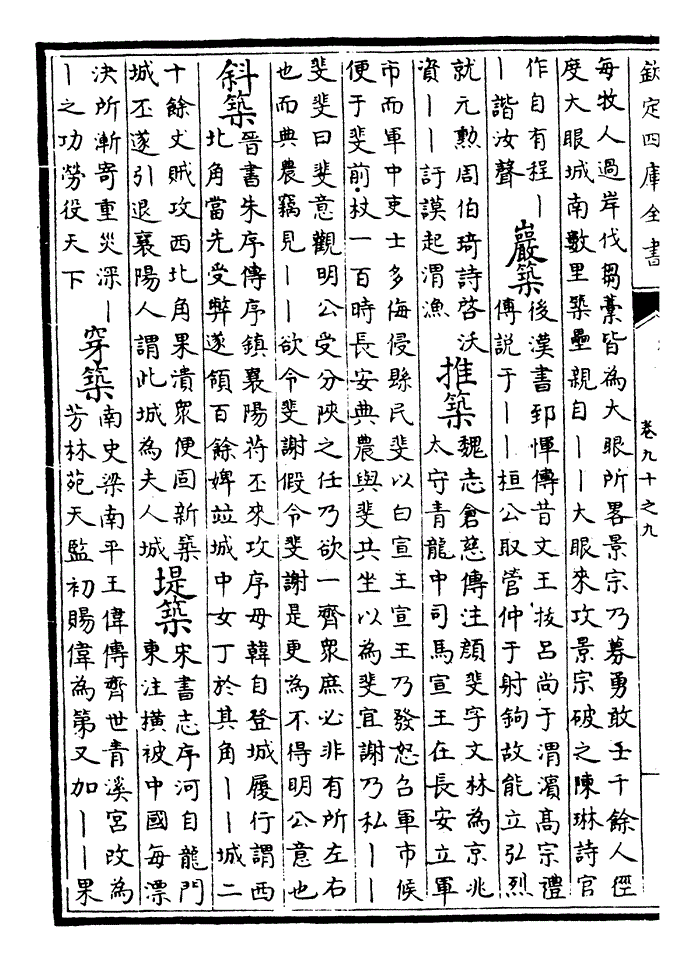 欽定四庫全書
卷九十之九
每牧人過岸伐芻藁皆為大眼所畧景宗乃募勇敢士千餘人徑
度大眼城南數里築壘親自丨丨大眼來攻景宗破之陳琳詩官
作自有程丨
丨諧汝聲
巖築
後漢書郅惲傳昔文王拔呂尚于渭濱髙宗禮
傅説于丨丨桓公取管仲于射鉤故能立弘烈
就元勲周伯琦詩啓沃
資丨丨訏謨起渭漁
推築
魏志倉慈傳注顔斐字文林為京兆
太守青龍中司馬宣王在長安立軍
市而軍中吏士多侮侵縣民斐以白宣王宣王乃發怒召軍市候
便于斐前杖一百時長安典農與斐共坐以為斐宜謝乃私丨丨
斐斐曰斐意觀明公受分陜之任乃欲一齊衆庶必非有所左右
也而典農竊見丨丨欲令斐謝假令斐謝是更為不得明公意也
斜築
晉書朱序傳序鎮襄陽苻丕來攻序母韓自登城履行謂西
北角當先受弊遂領百餘婢竝城中女丁於其角丨丨城二
十餘丈賊攻西北角果潰衆便固新築
城丕遂引退襄陽人謂此城為夫人城
堤築
宋書志序河自龍門
東注橫被中國每漂
決所漸寄重災深丨
丨之功勞役天下
穿築
南史梁南平王偉傳齊世青溪宮改為
芳林苑天監初賜偉為第又加丨丨果